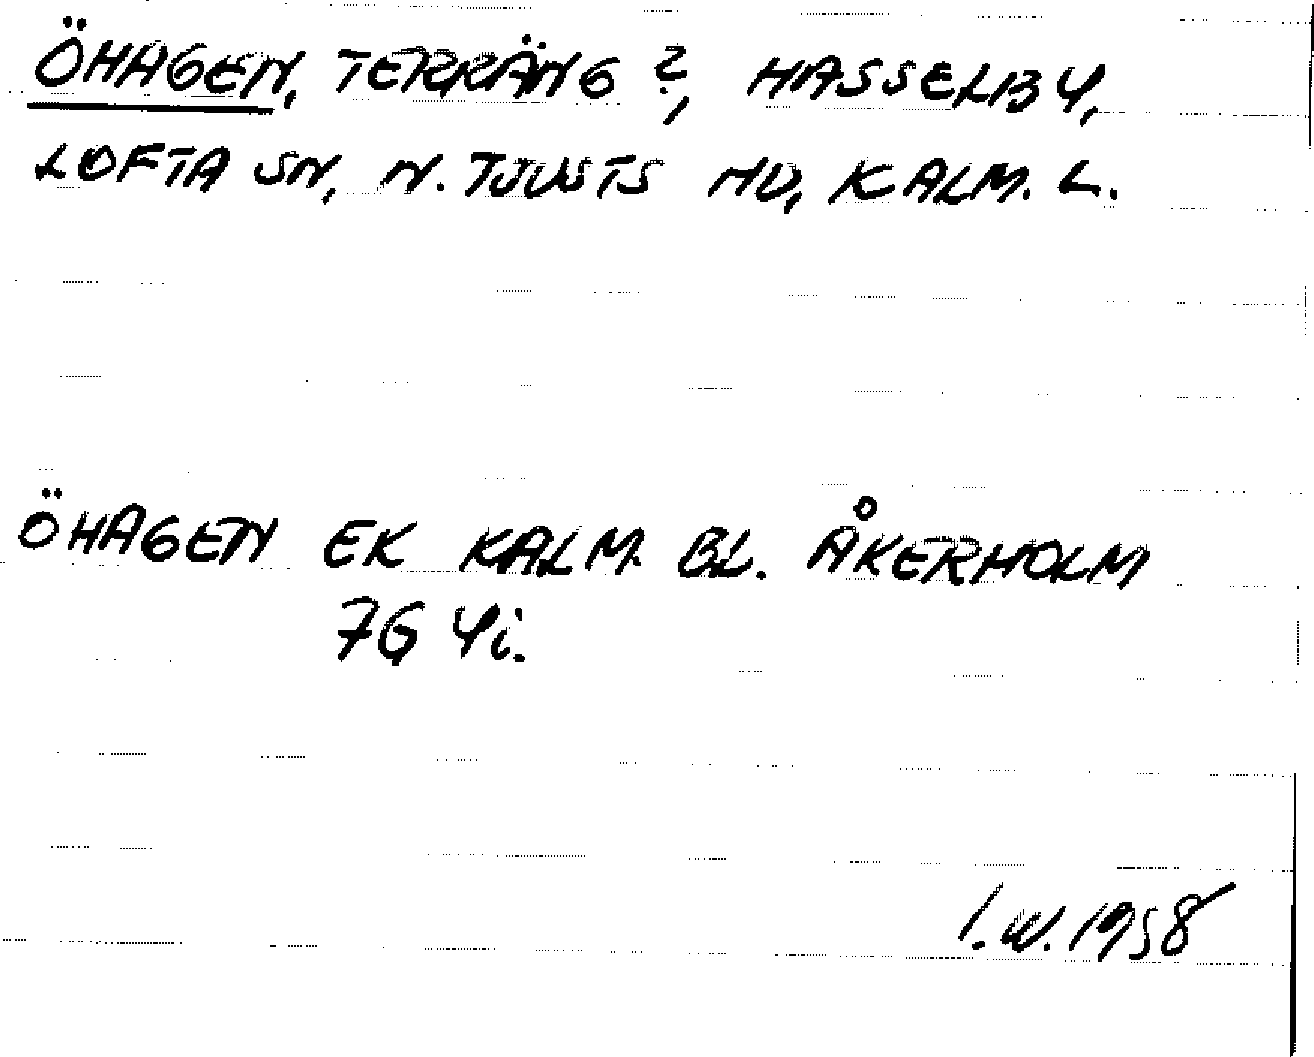 ÖHAGEN, TERRÄNG?, HASSELBY,
LOFTA SN, N. TJUSTS HD, KALM. L.
ÖHAGEN EK KALM. BL. ÅKERHOLM
7G 4i.
I.W. 1958